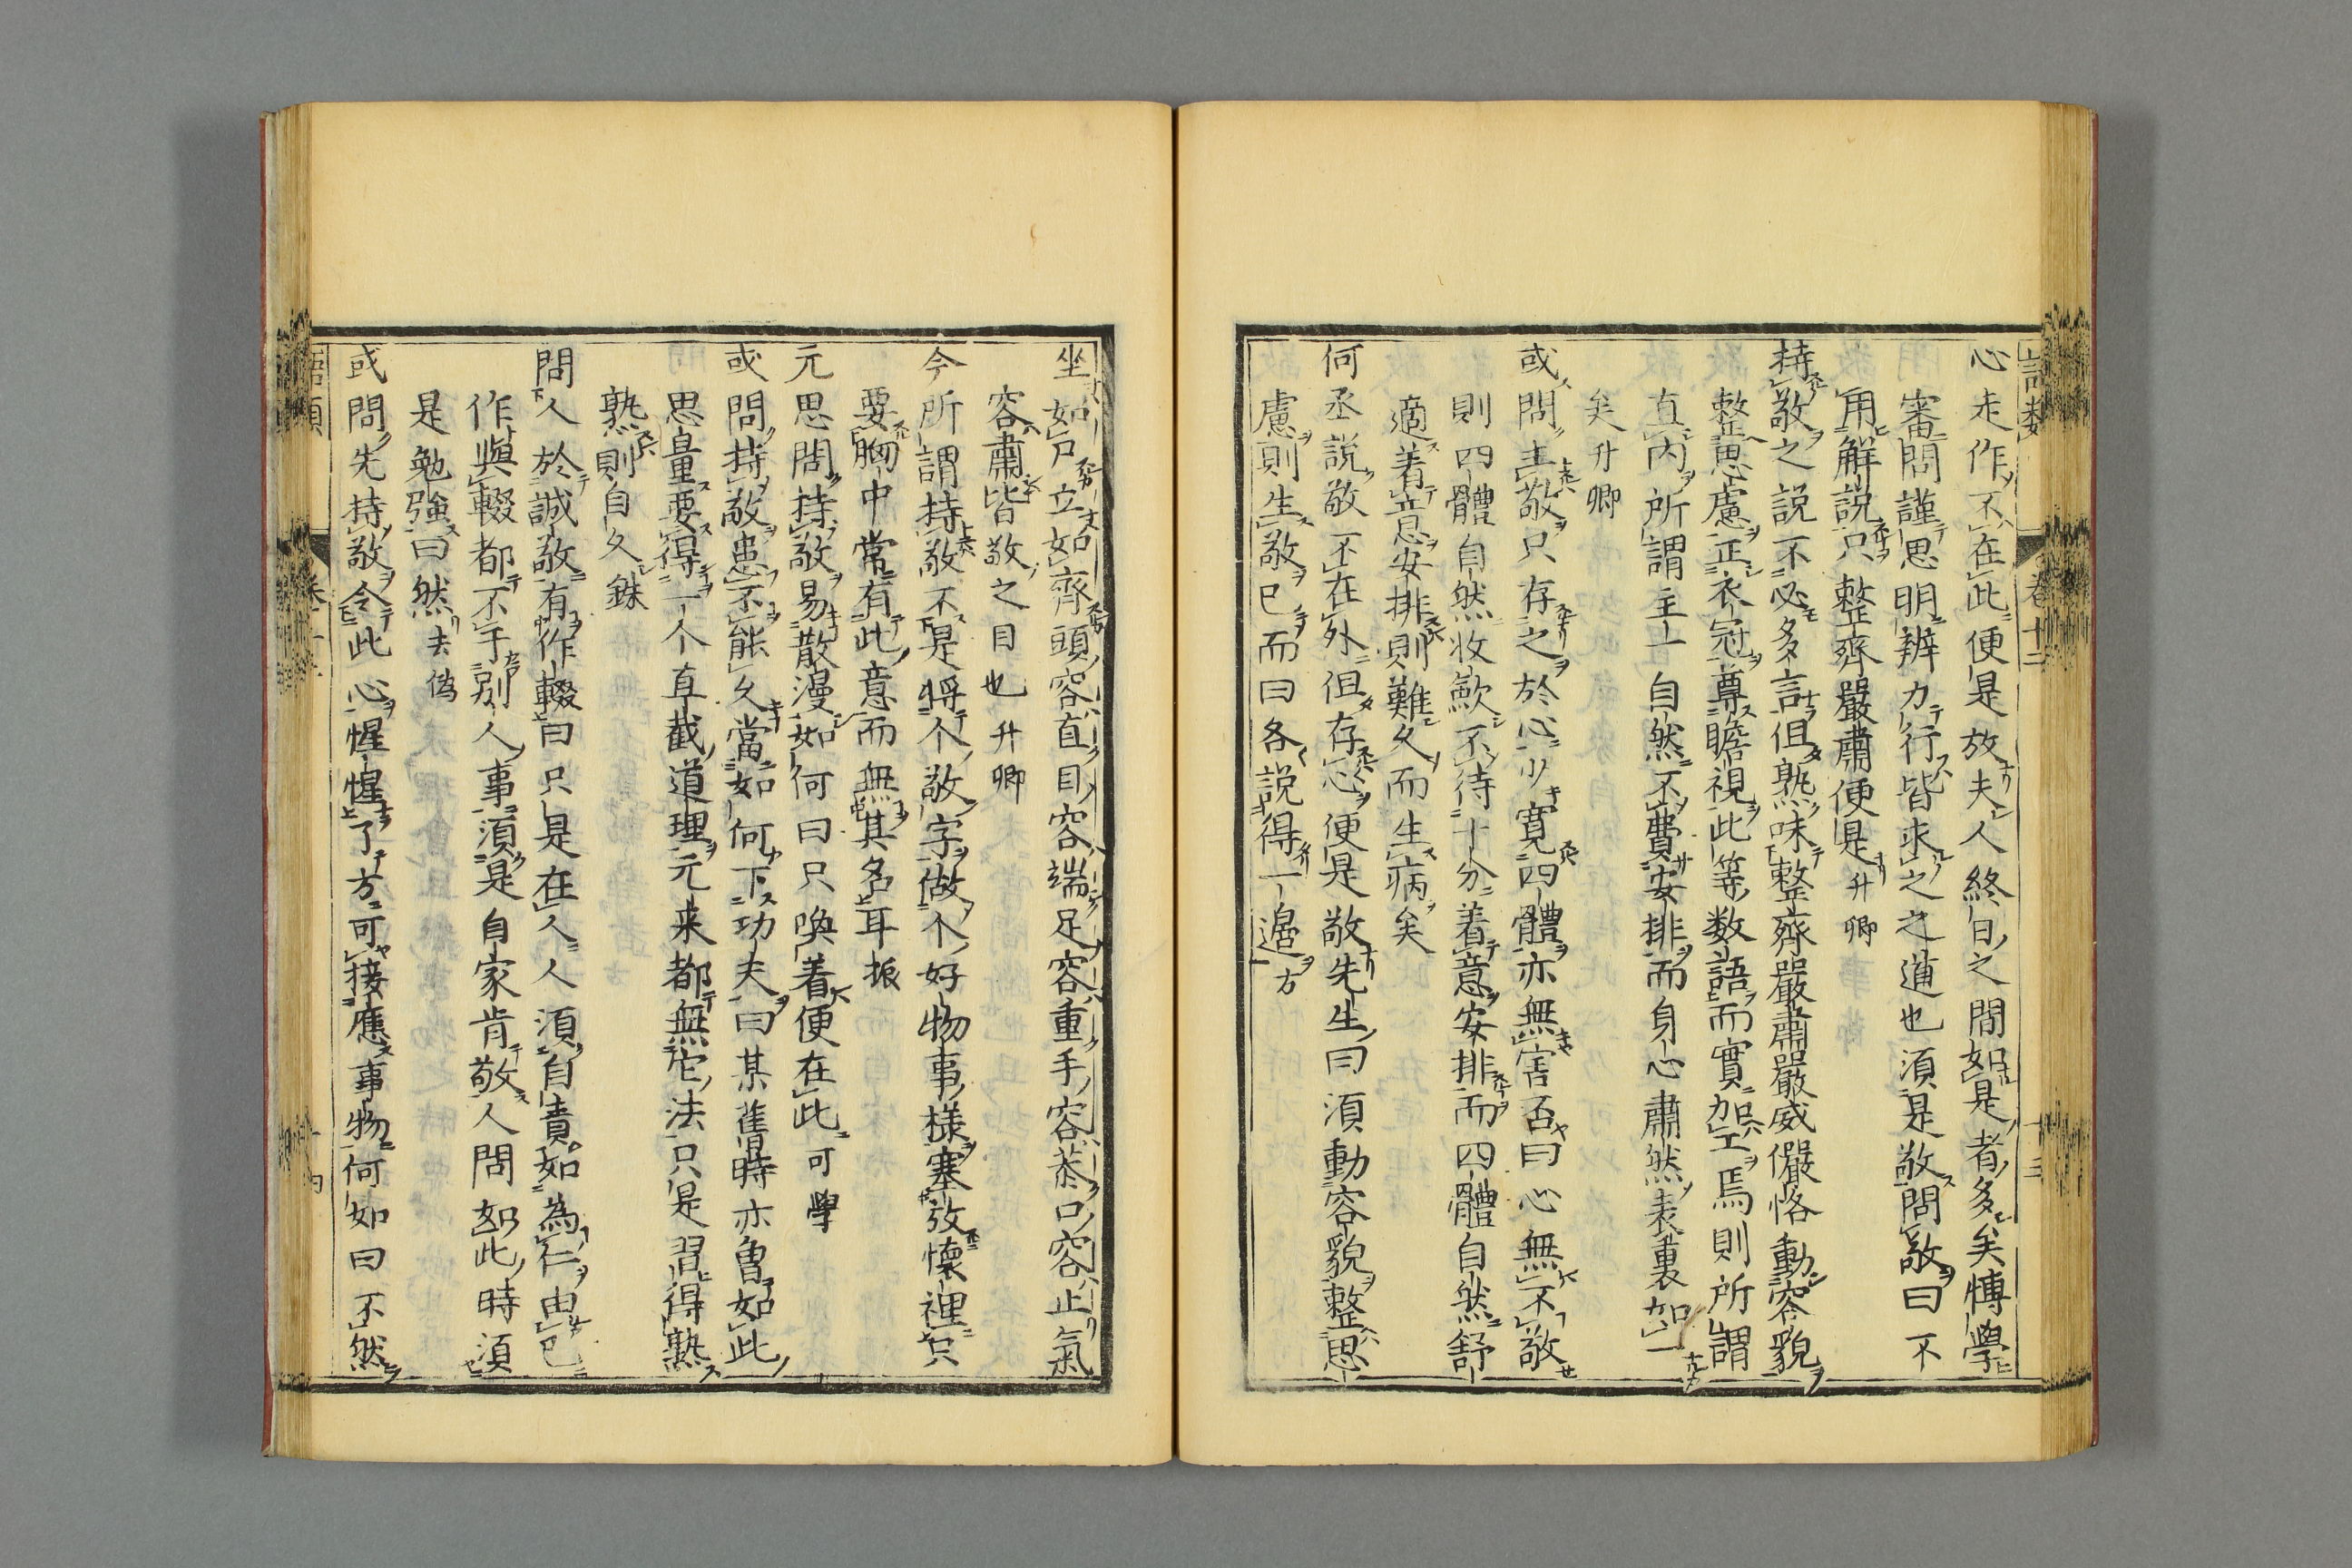 心走作不在此便是放夫人終日之間如是者多矣博學
審問謹思明辨力行皆求之之道也須是敬問敬曰不
用解説只整齊嚴肅便是升卿
持敬之説不必多言但熟味整齊嚴肅嚴威儼恪動容貌
整思慮正衣冠尊瞻視此等数語而實加工焉則所謂
直内所謂主一自然不費安排而身心肅然表裏如一
矣升卿
或問主敬只存之於心少寛四體亦無害否曰心無不敬
則四體自然收歛不待十分着意安排而四體自然舒
適着意安排則難久而生病矣
何丞説敬不在外但存心便是敬先生曰須動容貌整思
慮則生敬已而曰各説得一邉方
坐如尸立如齊頭容直目容端足容重手容恭口容止氣
容肅皆敬之目也升卿
今所謂持敬不是将个敬字做个好物事様塞放懐裡只
要胸中常有此意而無其名耳振
元思問持敬易散漫如何曰只喚着便在此可學
或問持敬患不能久當如何下功夫曰某舊時亦曽如此
思量要得一个直截道理元来都無它法只是習得熟
熟則自久銖
問人於誠敬有作輟曰只是在人人須自責如為仁由已
作與輟都不干別人事須是自家肯敬人問如此時須
是勉強曰然去偽
或問先持敬令此心惺惺了方可接應事物何如曰不然